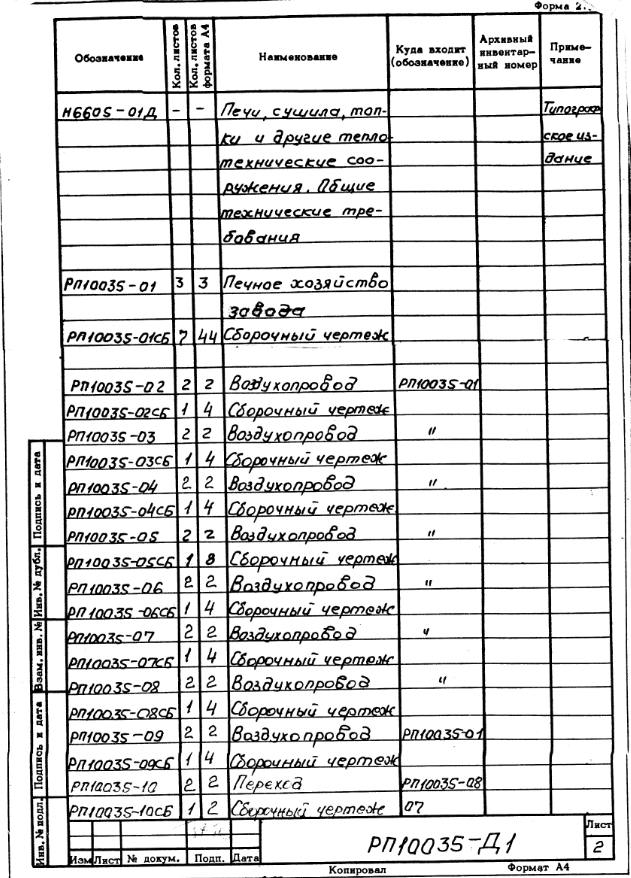 Форма 2.
Обозначение Кол. листов Кол. листов формата А4 Наименование Куда входит (обозначение) Архивный инвентарный номер Примечание
Н6605-01Д - - Печи, сушила, топ- Типограф
ки и другие тепло- ское из-
технические соо- дание
ружения. Общие
технические тре-
бования
РП10035-01 3 3 Печное хозяйство
завода
РП10035-01СБ 7 44 Сборочный чертеж
РП10035-02 2 2 Воздухопровод РП10035-01
РП10035-02СБ 1 4 Сборочный чертеж
РП10035-03 2 2 Воздухопровод "
РП10035-03СБ 1 4 Сборочный чертеж
РП10035-04 2 2 Воздухопровод "
РП10035-04СБ 1 4 Сборочный чертеж
РП10035-05 2 2 Воздухопровод "
РП10035-05СБ 1 8 Сборочный чертеж
РП10035-06 2 2 Воздухопровод "
РП10035-06СБ 1 4 Сборочный чертеж
РП10035-07 2 2 Воздухопровод "
РП10035-07СБ 1 4 Сборочный чертеж
РП10035-08 2 2 Воздухопровод "
РП10035-08СБ 1 4 Сборочный чертеж
РП10035-09 2 2 Воздухопровод РП10035-01
РП10035-09СБ 1 4 Сборочный чертеж
РП10035-10 2 2 Переход РП10035-08
РП10035-10СБ 1 2 Сборочный чертеж 07
Подпись и дата
Инв. № дубл.
Взам. инв. №
Подпись и дата
Инв. № подл.
Изм Лист № докум. Подп. Дата
РП10035-Д1
Лист
2
Копировал Формат А4